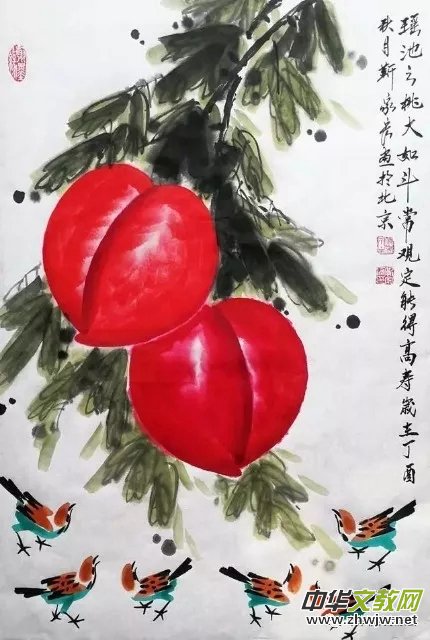 瑶池之桃大如斗常观定能得高寿歲在丁酉
秋月画於北京
中华文教网
www.zhwjw.net